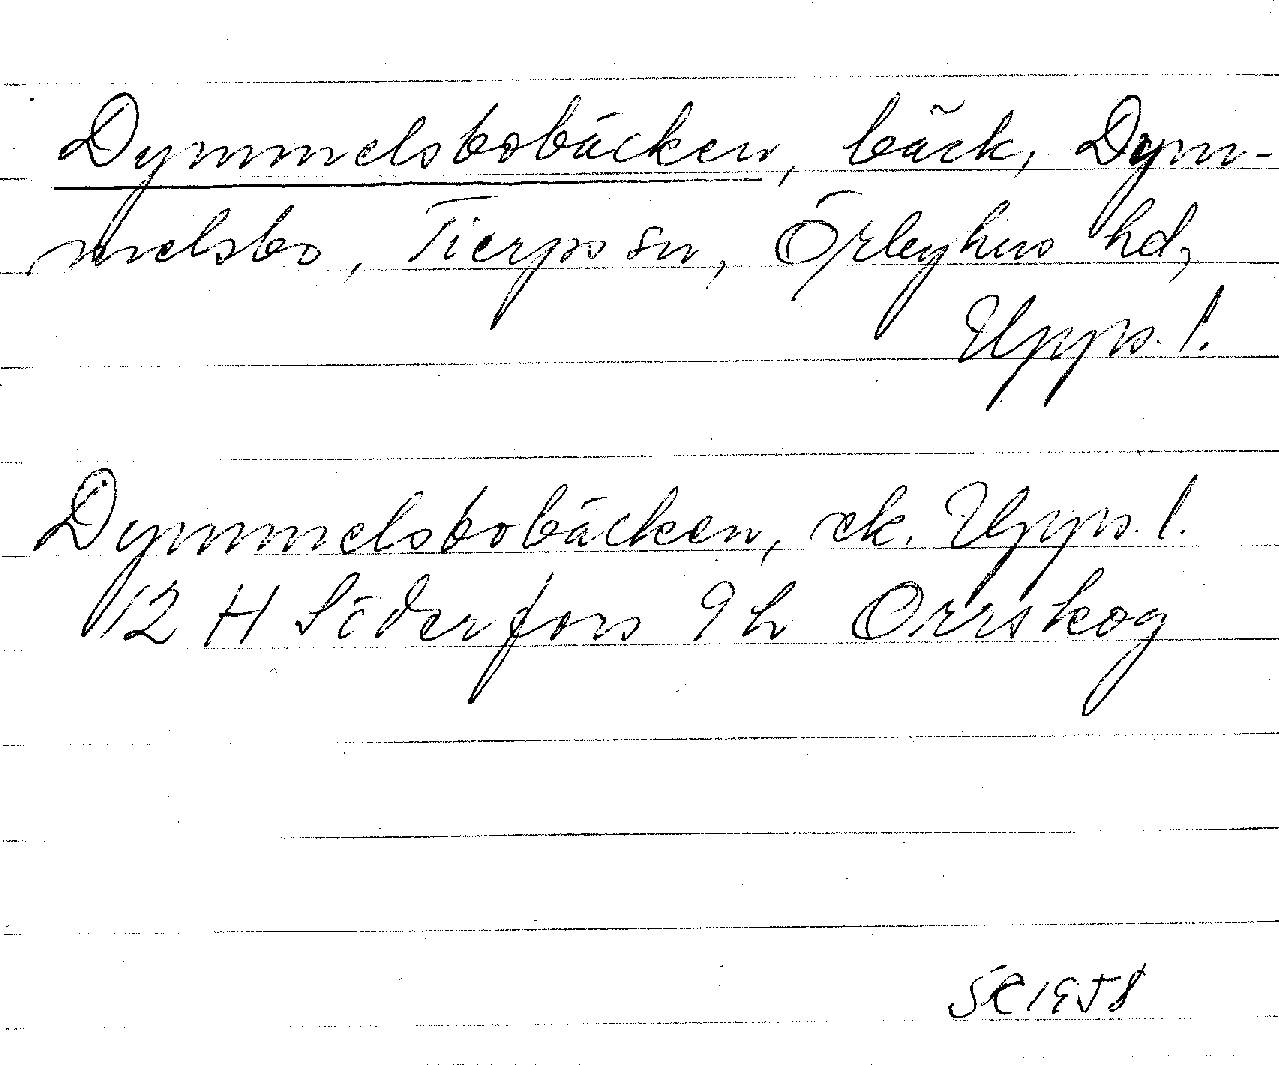 Dymmelsbobäcken, bäck, Dym-
melsbo, Tierps sn, Örbyhus hd,
Upps. l.
Dymmelsbobäcken, ek. Upps. l.
12 H Söderfors 9 h Orrskog
1958